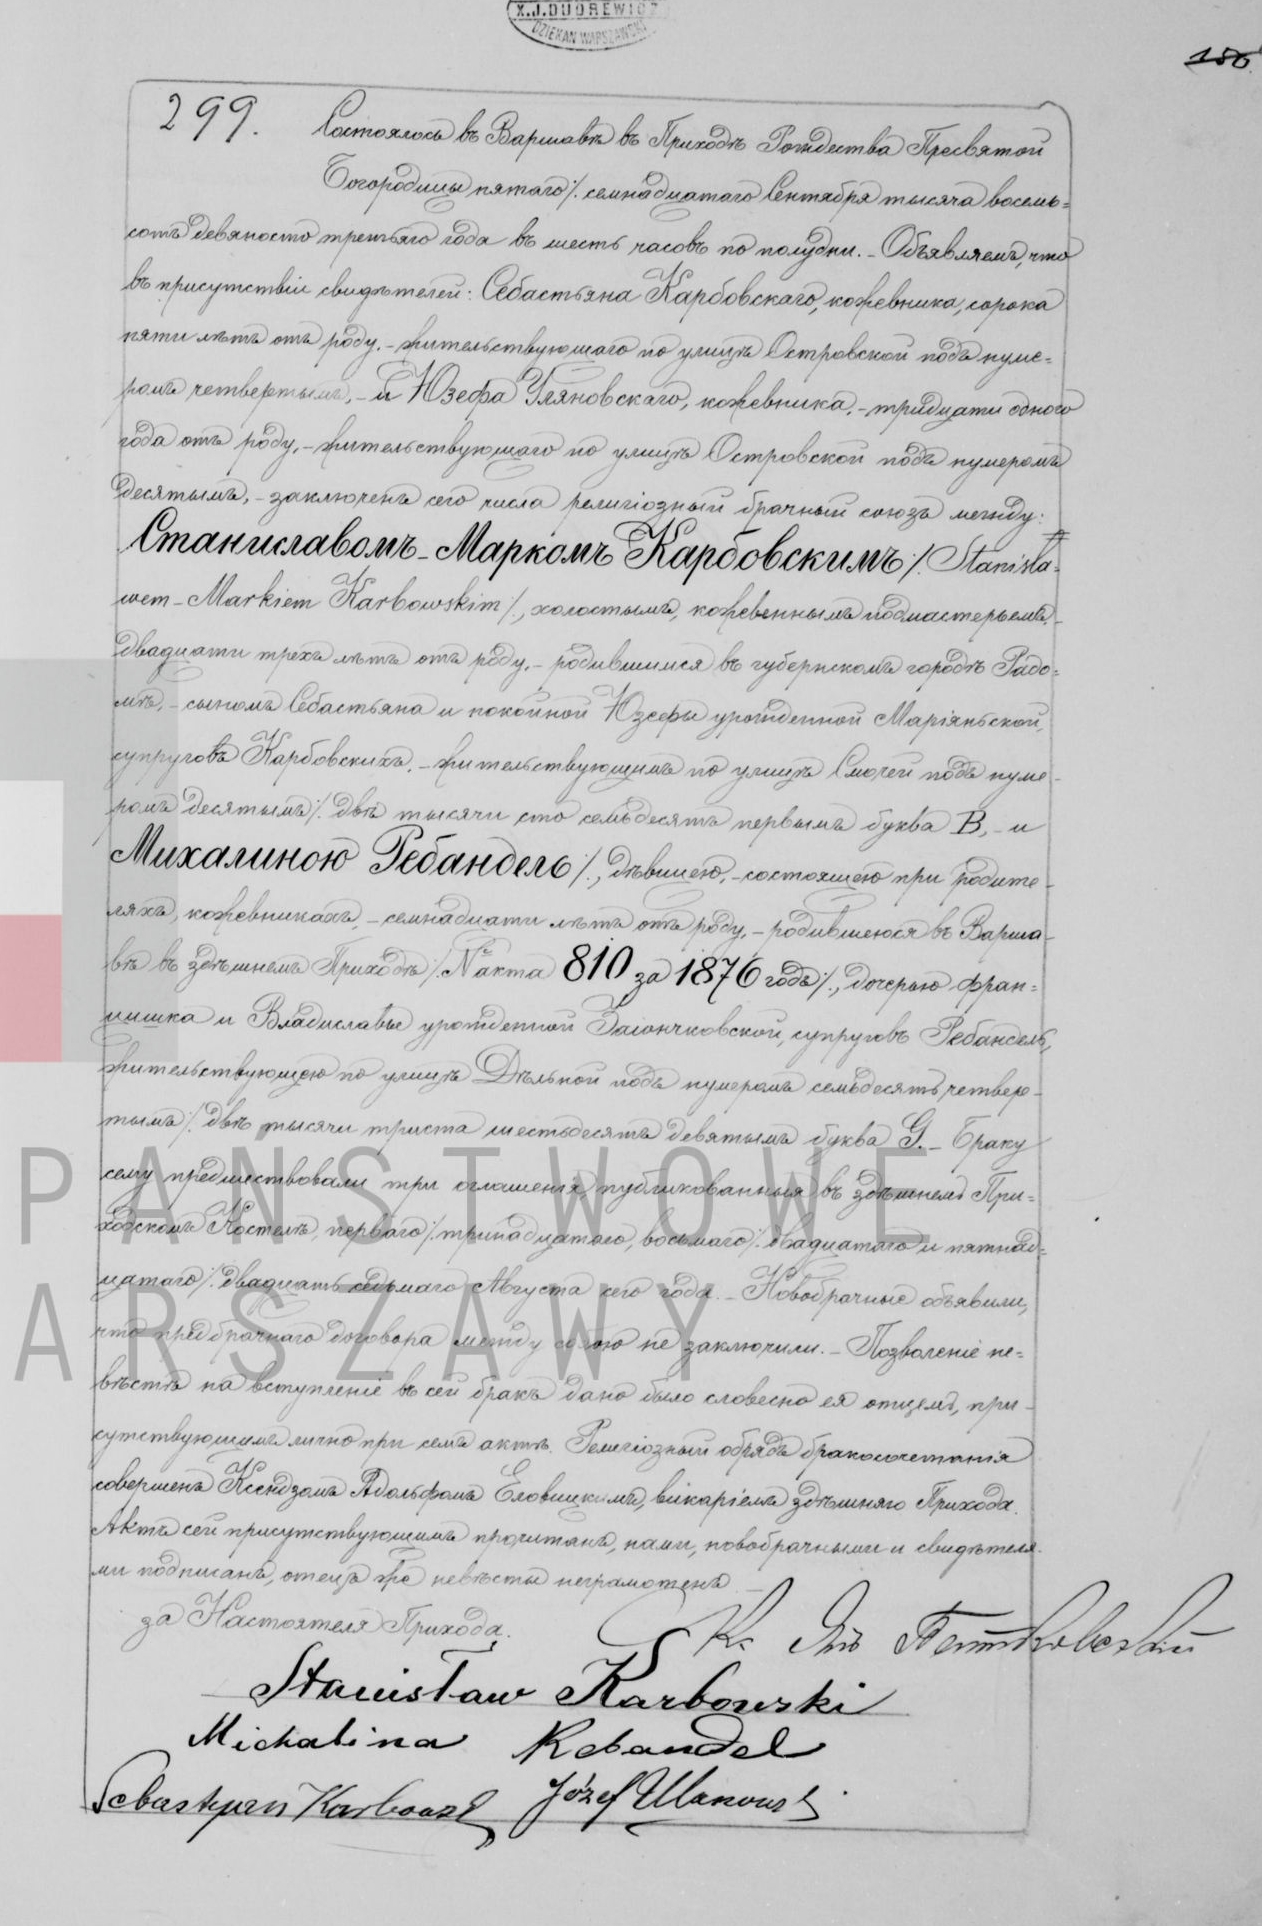 X.J.DUDREWICZ
DZIEKAN WARSZAWSKI
186.
299. Состоялось въ Варшавѣ въ Приходѣ Рождества Пресвятой
Богородицы пятаго /. семнадцатаго Сентября тысяча восемь=
сотъ девяносто третьяго года въ шесть часовъ по полудни. – Объявляемъ, что
въ присутствіи свидѣтелей: Себастьяна Карбовскаго, кожевника, сорока
пяти лѣтъ отъ роду, – жительствующаго по улицѣ Островской подъ нуме=
ромъ четвертымъ, – и Юзефа Уляновскаго, кожевника, – тридцати одного
года отъ роду, – жительствующаго по улицѣ Островской подъ нумеромъ
десятымъ, – заключенъ сего числа религіозный брачный союзъ между:
Станиславомъ – Маркомъ Карбовскимъ /. Stanisła=
wem – Markiem Karbowskim /., холостымъ, кожевеннымъ подмастерьемъ, –
двадцати трехъ лѣтъ отъ роду, – родившимся въ губернскомъ городѣ Радо=
мѣ, – сыномъ Себастьяна и покойной Юзефы урожденной Маріяньской,
супруговъ Карбовскихъ, – жительствующимъ по улицѣ Смочей подъ нуме–
ромъ десятымъ /. двѣ тысячи сто семьдесятъ первымъ буква B, – и
Михалиною Ребандель /., дѣвицею, – состоящею при родите–
ляхъ, кожевникахъ, – семнадцати лѣтъ отъ роду, – родившеюся въ Варша–
вѣ въ здѣшнемъ Приходѣ /. № акта 810 за 1876 годъ /., дочерью Фран=
цишка и Владиславы урожденной Заіончковской, супруговъ Ребандель,
жительствующею по улицѣ Дѣльной подъ нумеромъ семьдесятъ четвер–
тымъ /. двѣ тысячи триста шестьдесятъ девятымъ буква G. – Браку
сему предшествовали три оглашенія, публикованныя въ здѣшнемъ При=
ходскомъ Костелѣ, перваго /. тринадцатаго, восьмаго /. двадцатаго и пятнад=
цатаго /. двадцать седьмаго Августа сего года. – Новобрачные объявили,
что предбрачнаго договора между собою не заключили. – Позволеніе не=
вѣстѣ на вступленіе въ сей бракъ дано было словесно ея отцемъ, при–
сутствующимъ лично при семъ актѣ. Религіозный обрядъ бракосочетанія
совершенъ Ксендзомъ Адольфомъ Еловицкимъ, викаріемъ здѣшняго Прихода.
Актъ сей присутствующимъ прочитанъ, нами, новобрачными и свидѣтеля–
ми подписанъ, отецъ же невѣсты неграмотенъ. –
за Настоятеля Прихода, Кс Янъ
Stanisław Karbowski
Michalina Rebandel
Sebastyan Karbowski Józef Ulanowski
PAŃSTWOWE
ARSZAWY